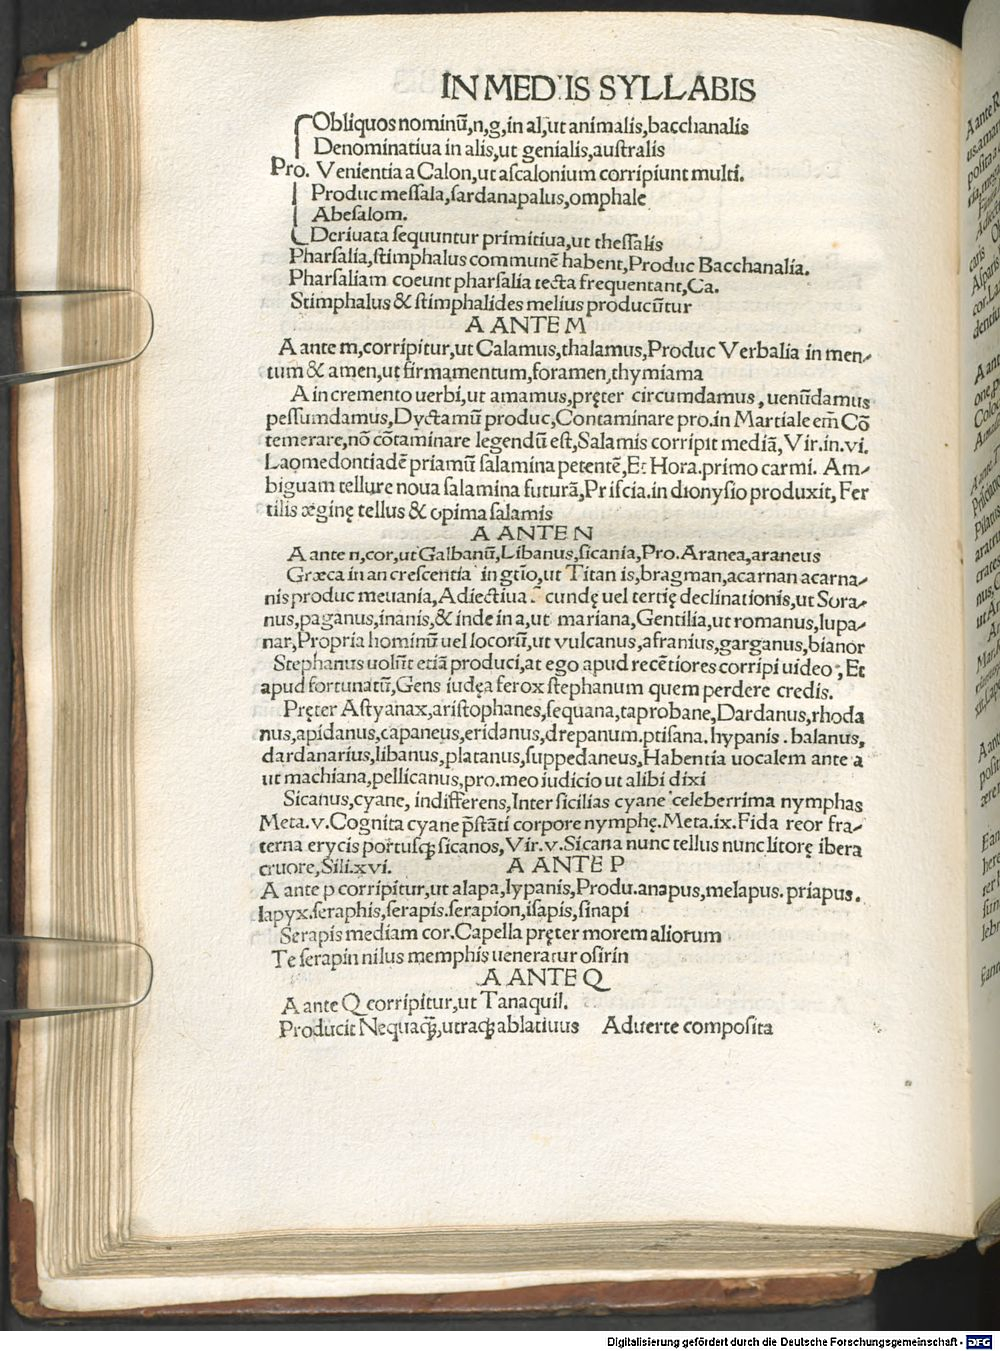 IN MEDIIS SYLLABIS
Obliquos nominū,n,g,in al,ut animalis,bacchanalis
Denominatiua in alis,ut genialis,auſtralis
Pro. Venientia a Calon,ut aſcalonium corripiunt multi.
Produc meſſala,ſardanapalus,omphale
Abeſalom.
Deriuata ſequuntur primitiua,ut theſſalis
Pharſalia,ſtimphalus communē habent,Produc Bacchanalia.
Pharſaliam coeunt pharſalia tecta frequentant,Ca.
Stimphalus & ſtimphalides melius producūtur
A ANTE M
A ante m,corripitur,ut Calamus,thalamus,Produc Verbalia in men⸗
tum & amen,ut firmamentum,foramen,thymiama
A in cremento uerbi,ut amamus,pręter circumdamus,uenūdamus
peſſumdamus,Dyctamū produc,Contaminare pro.in Martiale em̄ Cō
temerare,nō cōtaminare legendū eſt,Salamis corripit mediā,Vir.in.vi.
Laomedontiadē priamū ſalamina petentē,Et Hora.primo carmi. Am⸗
biguam tellure noua ſalamina futurā,Priſcia.in dionyſio produxit,Fer
tilis æginę tellus & opima ſalamis
A ANTE N
A ante n,cor,ut Galbanū,Libanus,ſicania,Pro.Aranea,araneus
Græca in an creſcentia in gtīo,ut Titan is,bragman,acarnan acarna⸗
nis produc meuania,Adiectiua ſecundę uel tertię declinationis,ut Sora⸗
nus,paganus,inanis,& inde in a,ut mariana,Gentilia,ut romanus,lupa⸗
nar,Propria hominū uel locorū,ut vulcanus,afranius,garganus,bianor
Stephanus uolūt etiā produci,at ego apud recētiores corripi uideo,Et
apud fortunatū,Gens iudęa ferox ſtephanum quem perdere credis.
Pręter Aſtyanax,ariſtophanes,ſequana,taprobane,Dardanus,rhoda
nus,apidanus,capaneus,eridanus,drepanum.ptiſana.hypanis.balanus,
dardanarius,libanus,platanus,ſuppedaneus,Habentia uocalem ante a
ut machiana,pellicanus,pro.meo iudicio ut alibi dixi
Sicanus,cyane, indifferens,Inter ſicilias cyane celeberrima nymphas
Meta.v.Cognita cyane p̄ſtāti corpore nymphę.Meta.ix.Fida reor fra⸗
terna erycis portuſqꝫ ſicanos,Vir.v.Sicana nunc tellus nunc litorę ibera
cruore,Sili.xvi. A ANTE P
A ante p corripitur,ut alapa,lypanis,Produ.anapus,melapus.priapus.
Iapyx.ſeraphis,ſerapis.ſerapion,iſapis,ſinapi
Serapis mediam cor.Capella pręter morem aliorum
Te ſerapin nilus memphis ueneratur oſirin
A ANTE Q
A ante Q corripitur,ut Tanaquil.
Producit Nequaqꝫ,utraqꝫ ablatiuus Aduerte compoſita
Digitalisierung gefördert durch die Deutsche Forschungsgemeinschaft - DFG